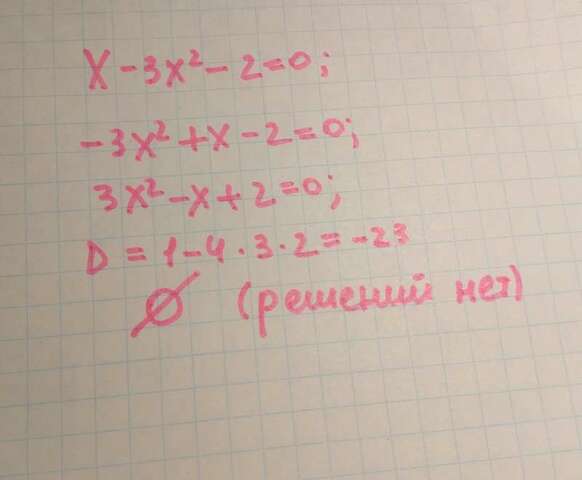 X - 3x² - 2 = 0;
-3x² + x - 2 = 0;
3x² - x + 2 = 0;
D = 1 - 4 · 3 · 2 = -23
∅ (решений нет)